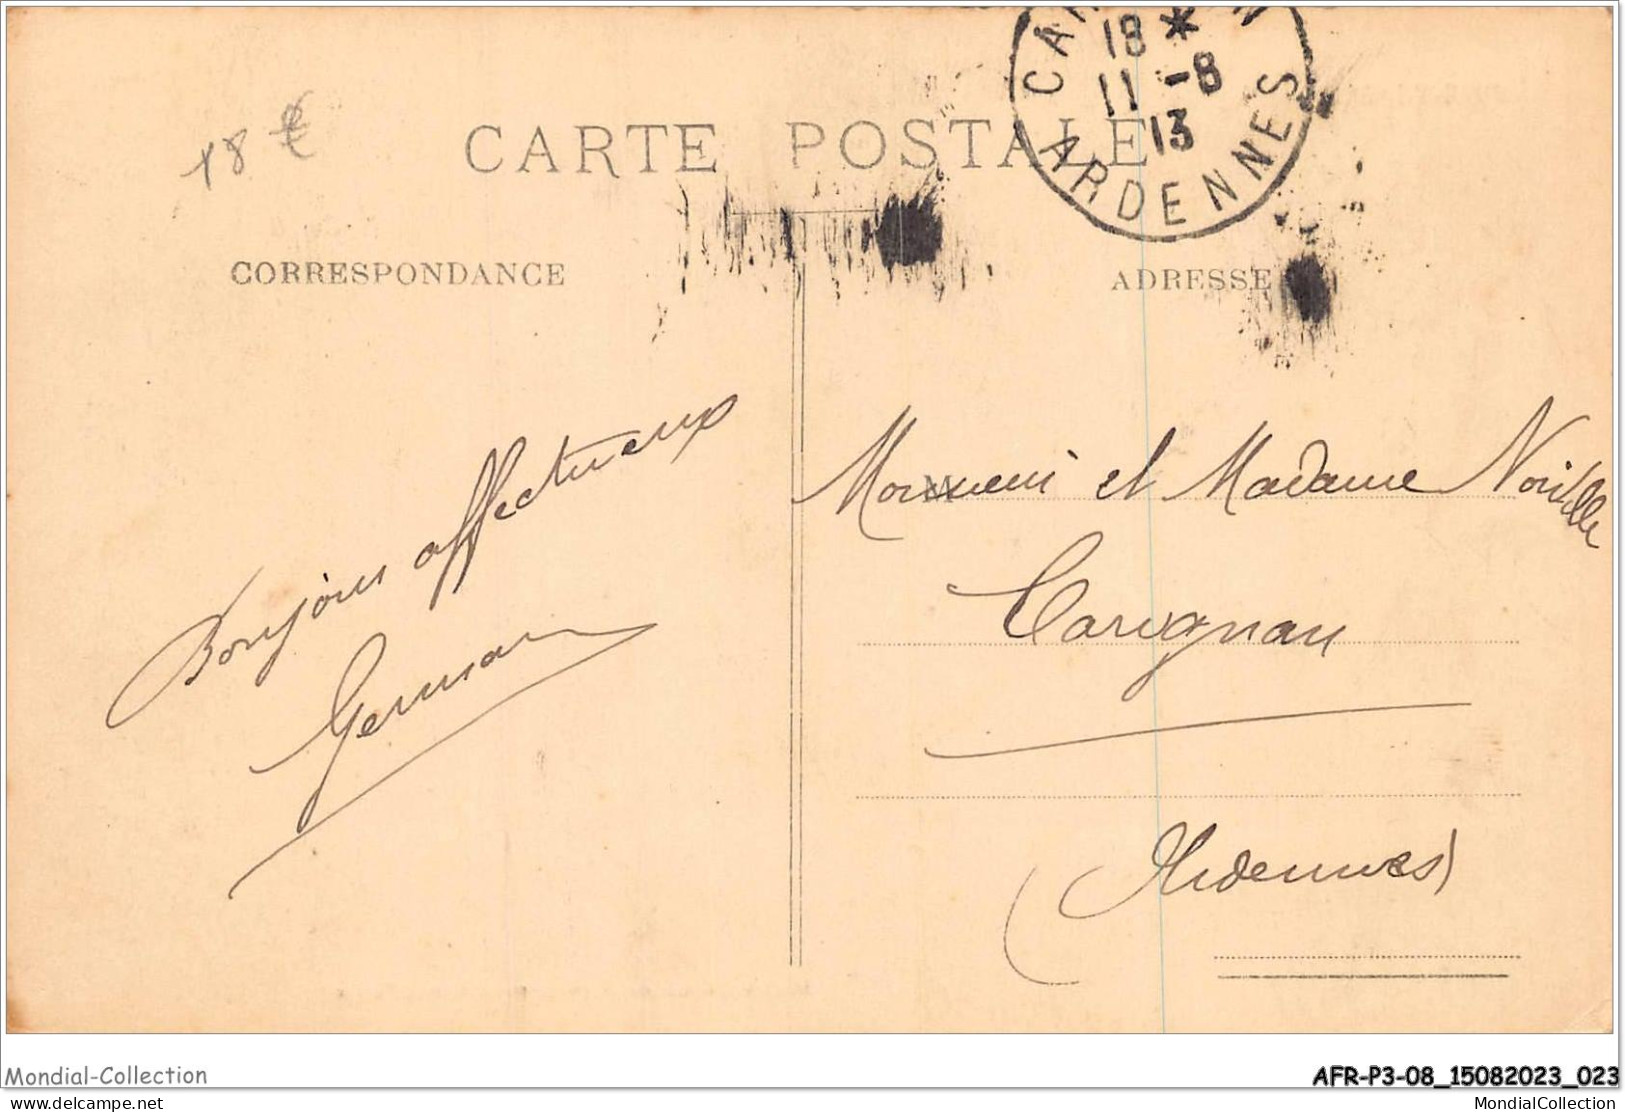 18 *
11 -8
13
ARDENNES
18 €
CARTE POSTALE
CORRESPONDANCE
ADRESSE
Bonjours affectueux
Germain
Monsieur et Madame
Carignan
(Ardennes)
Mondial-Collection
AFR-P3-08_15082023_023
delcampe.net
MondialCollection